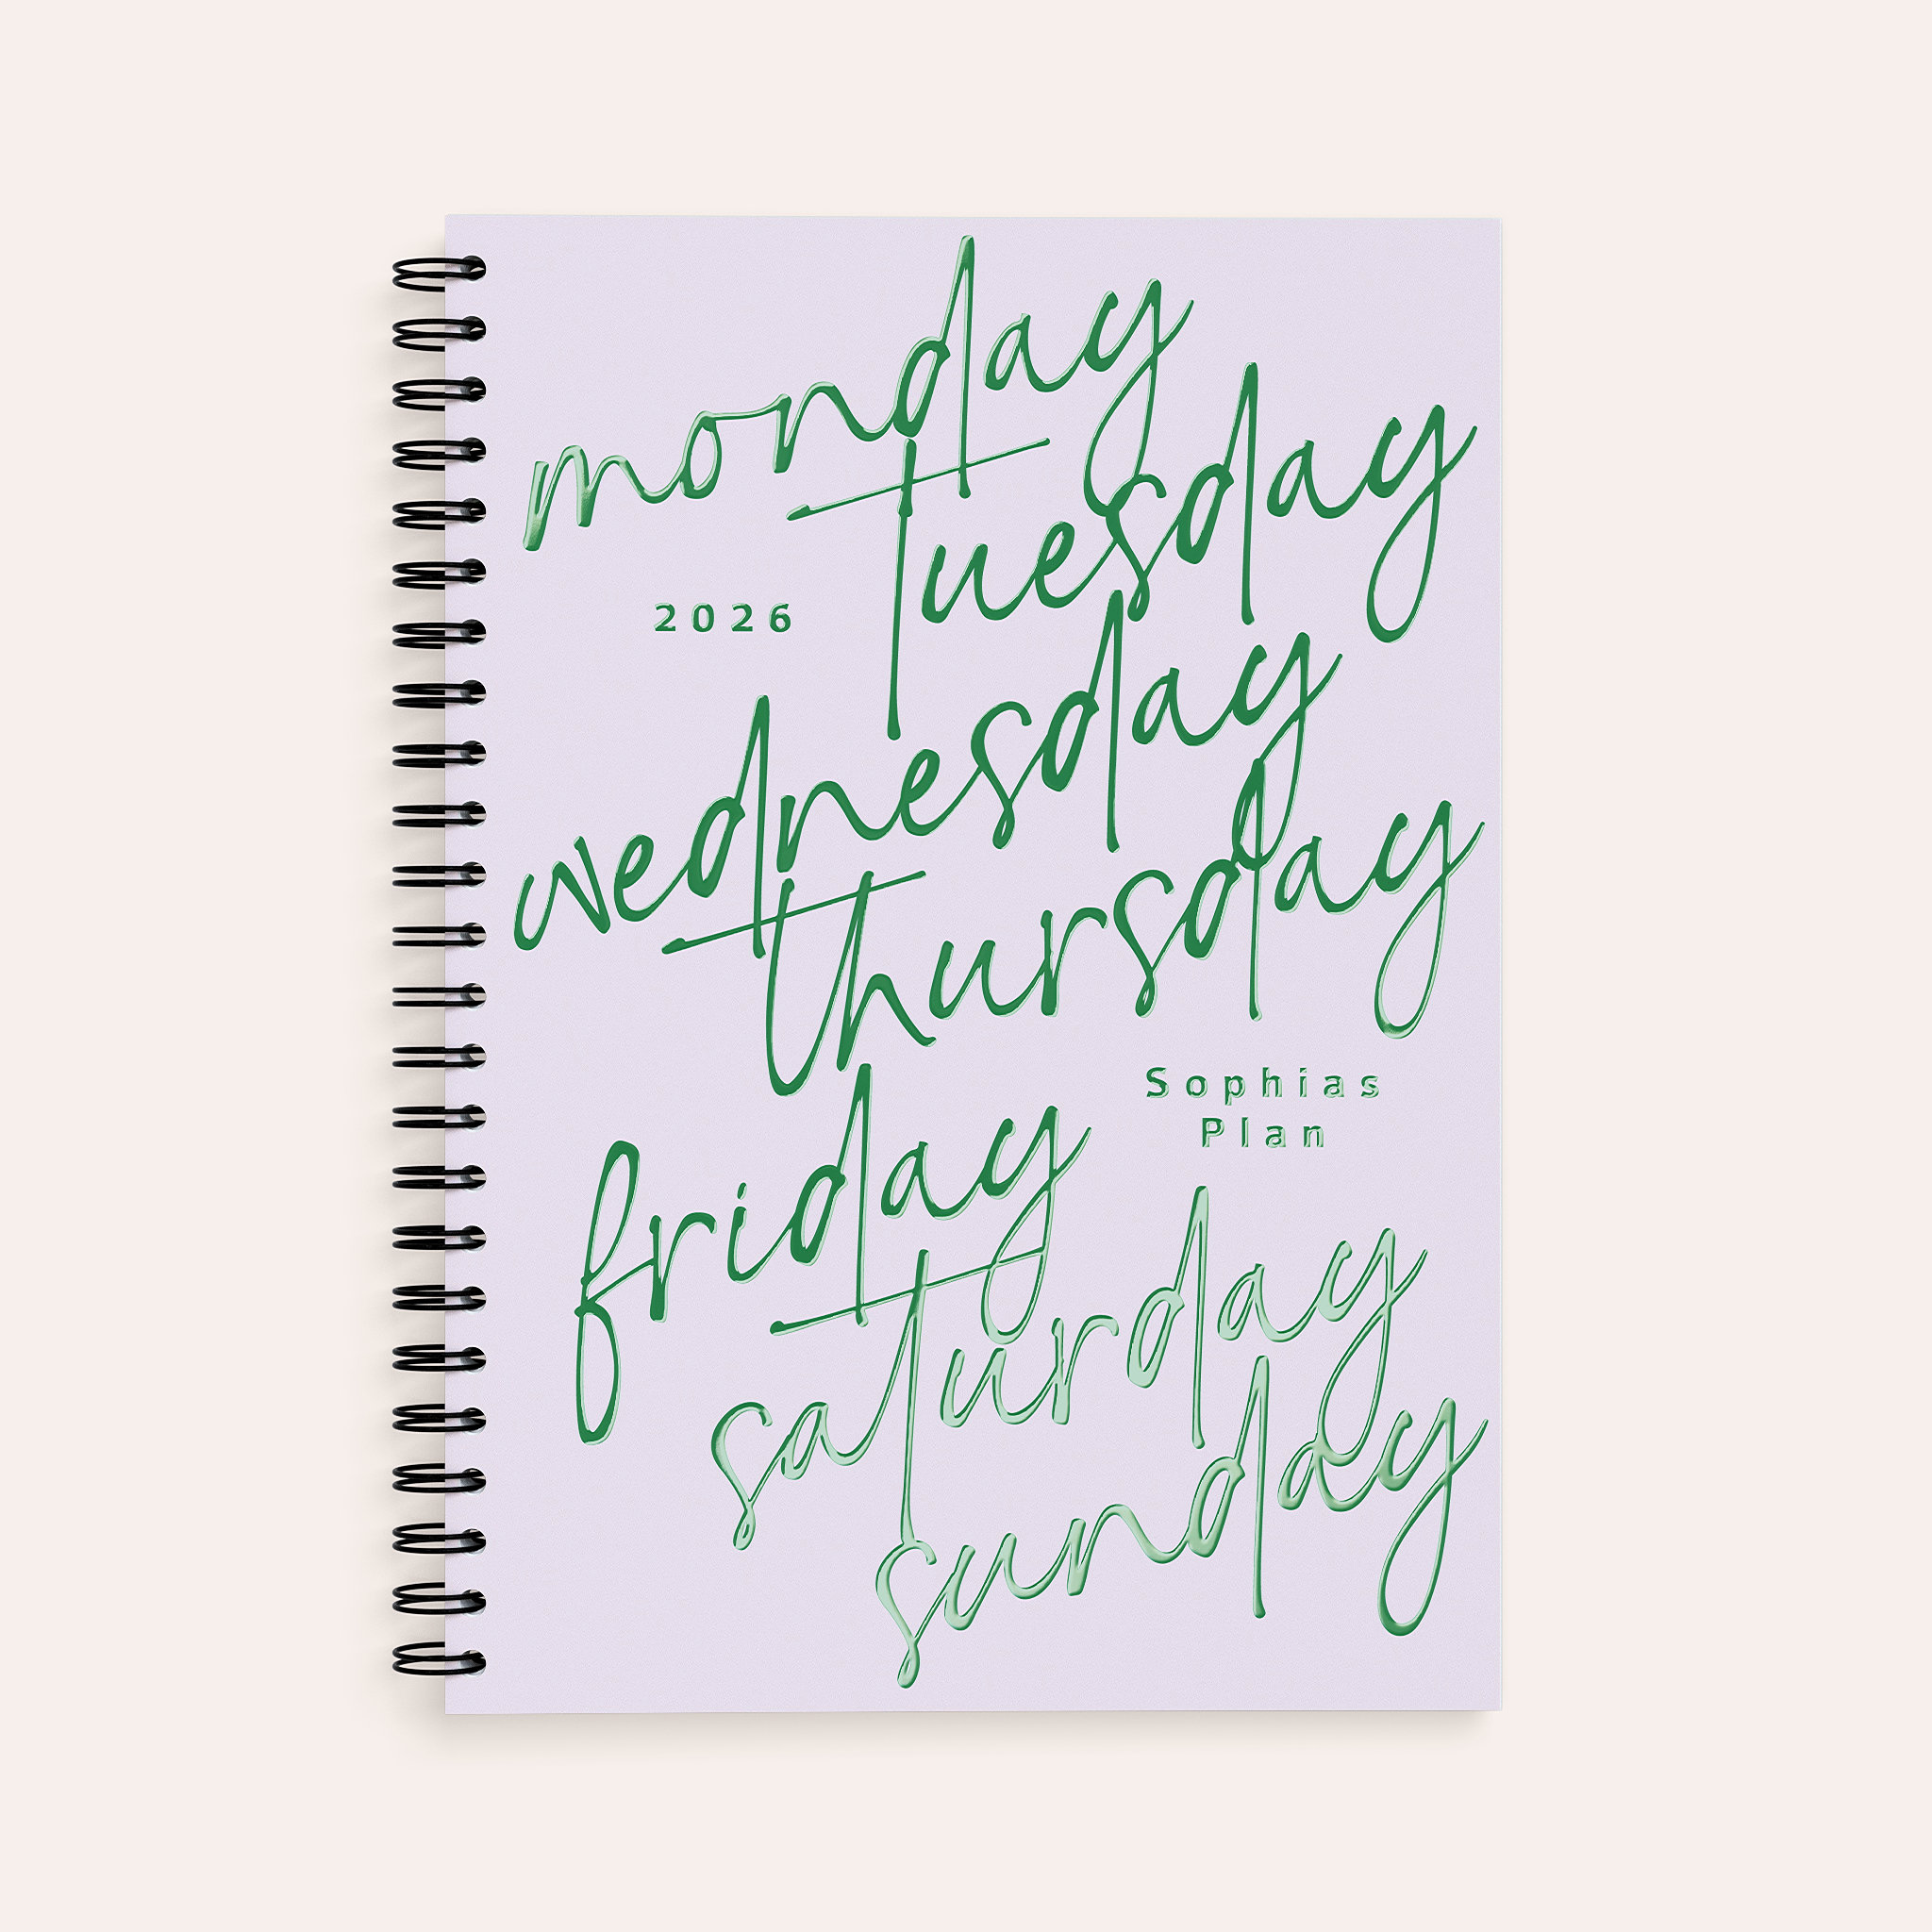 monday
tuesday
2026
wednesday
thursday
Sophias
Plan
friday
saturday
sunday